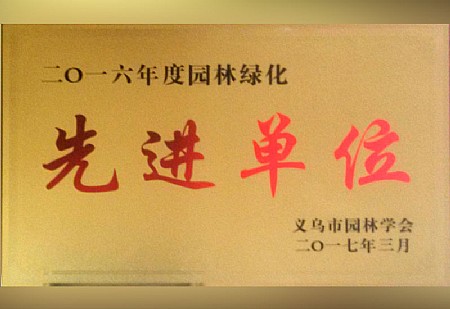 二〇一六年度园林绿化
先进单位
义乌市园林学会
二〇一七年三月